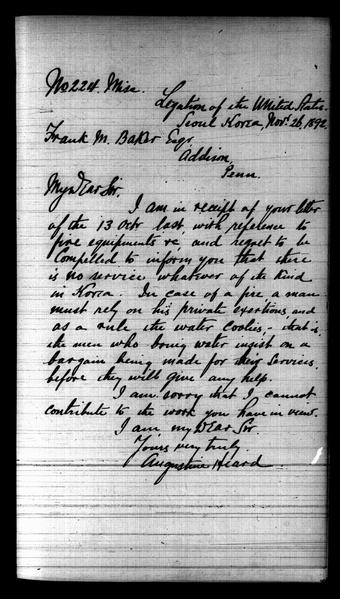 No 224. Misc.
Legation of the United States.
Seoul Korea, Nov. 26, 1892.
Frank M. Baker Esqr
Addison,
Penn.
My Dear Sir.
I am in receipt of your letter
of the 13 Octr last, with reference to
fire equipments &c, and regret to be
compelled to inform you that there
is no service whatever of the kind
in Korea. In case of a fire a man
must rely on his private exertions, and
as a rule the water coolies, - that is,
the men who bring water insist on a
bargain being made for their services,
before they will give any help.
I am sorry that I cannot
contribute to the work you have in view.
I am my Dear Sir.
Yours very truly.
Augustine Heard